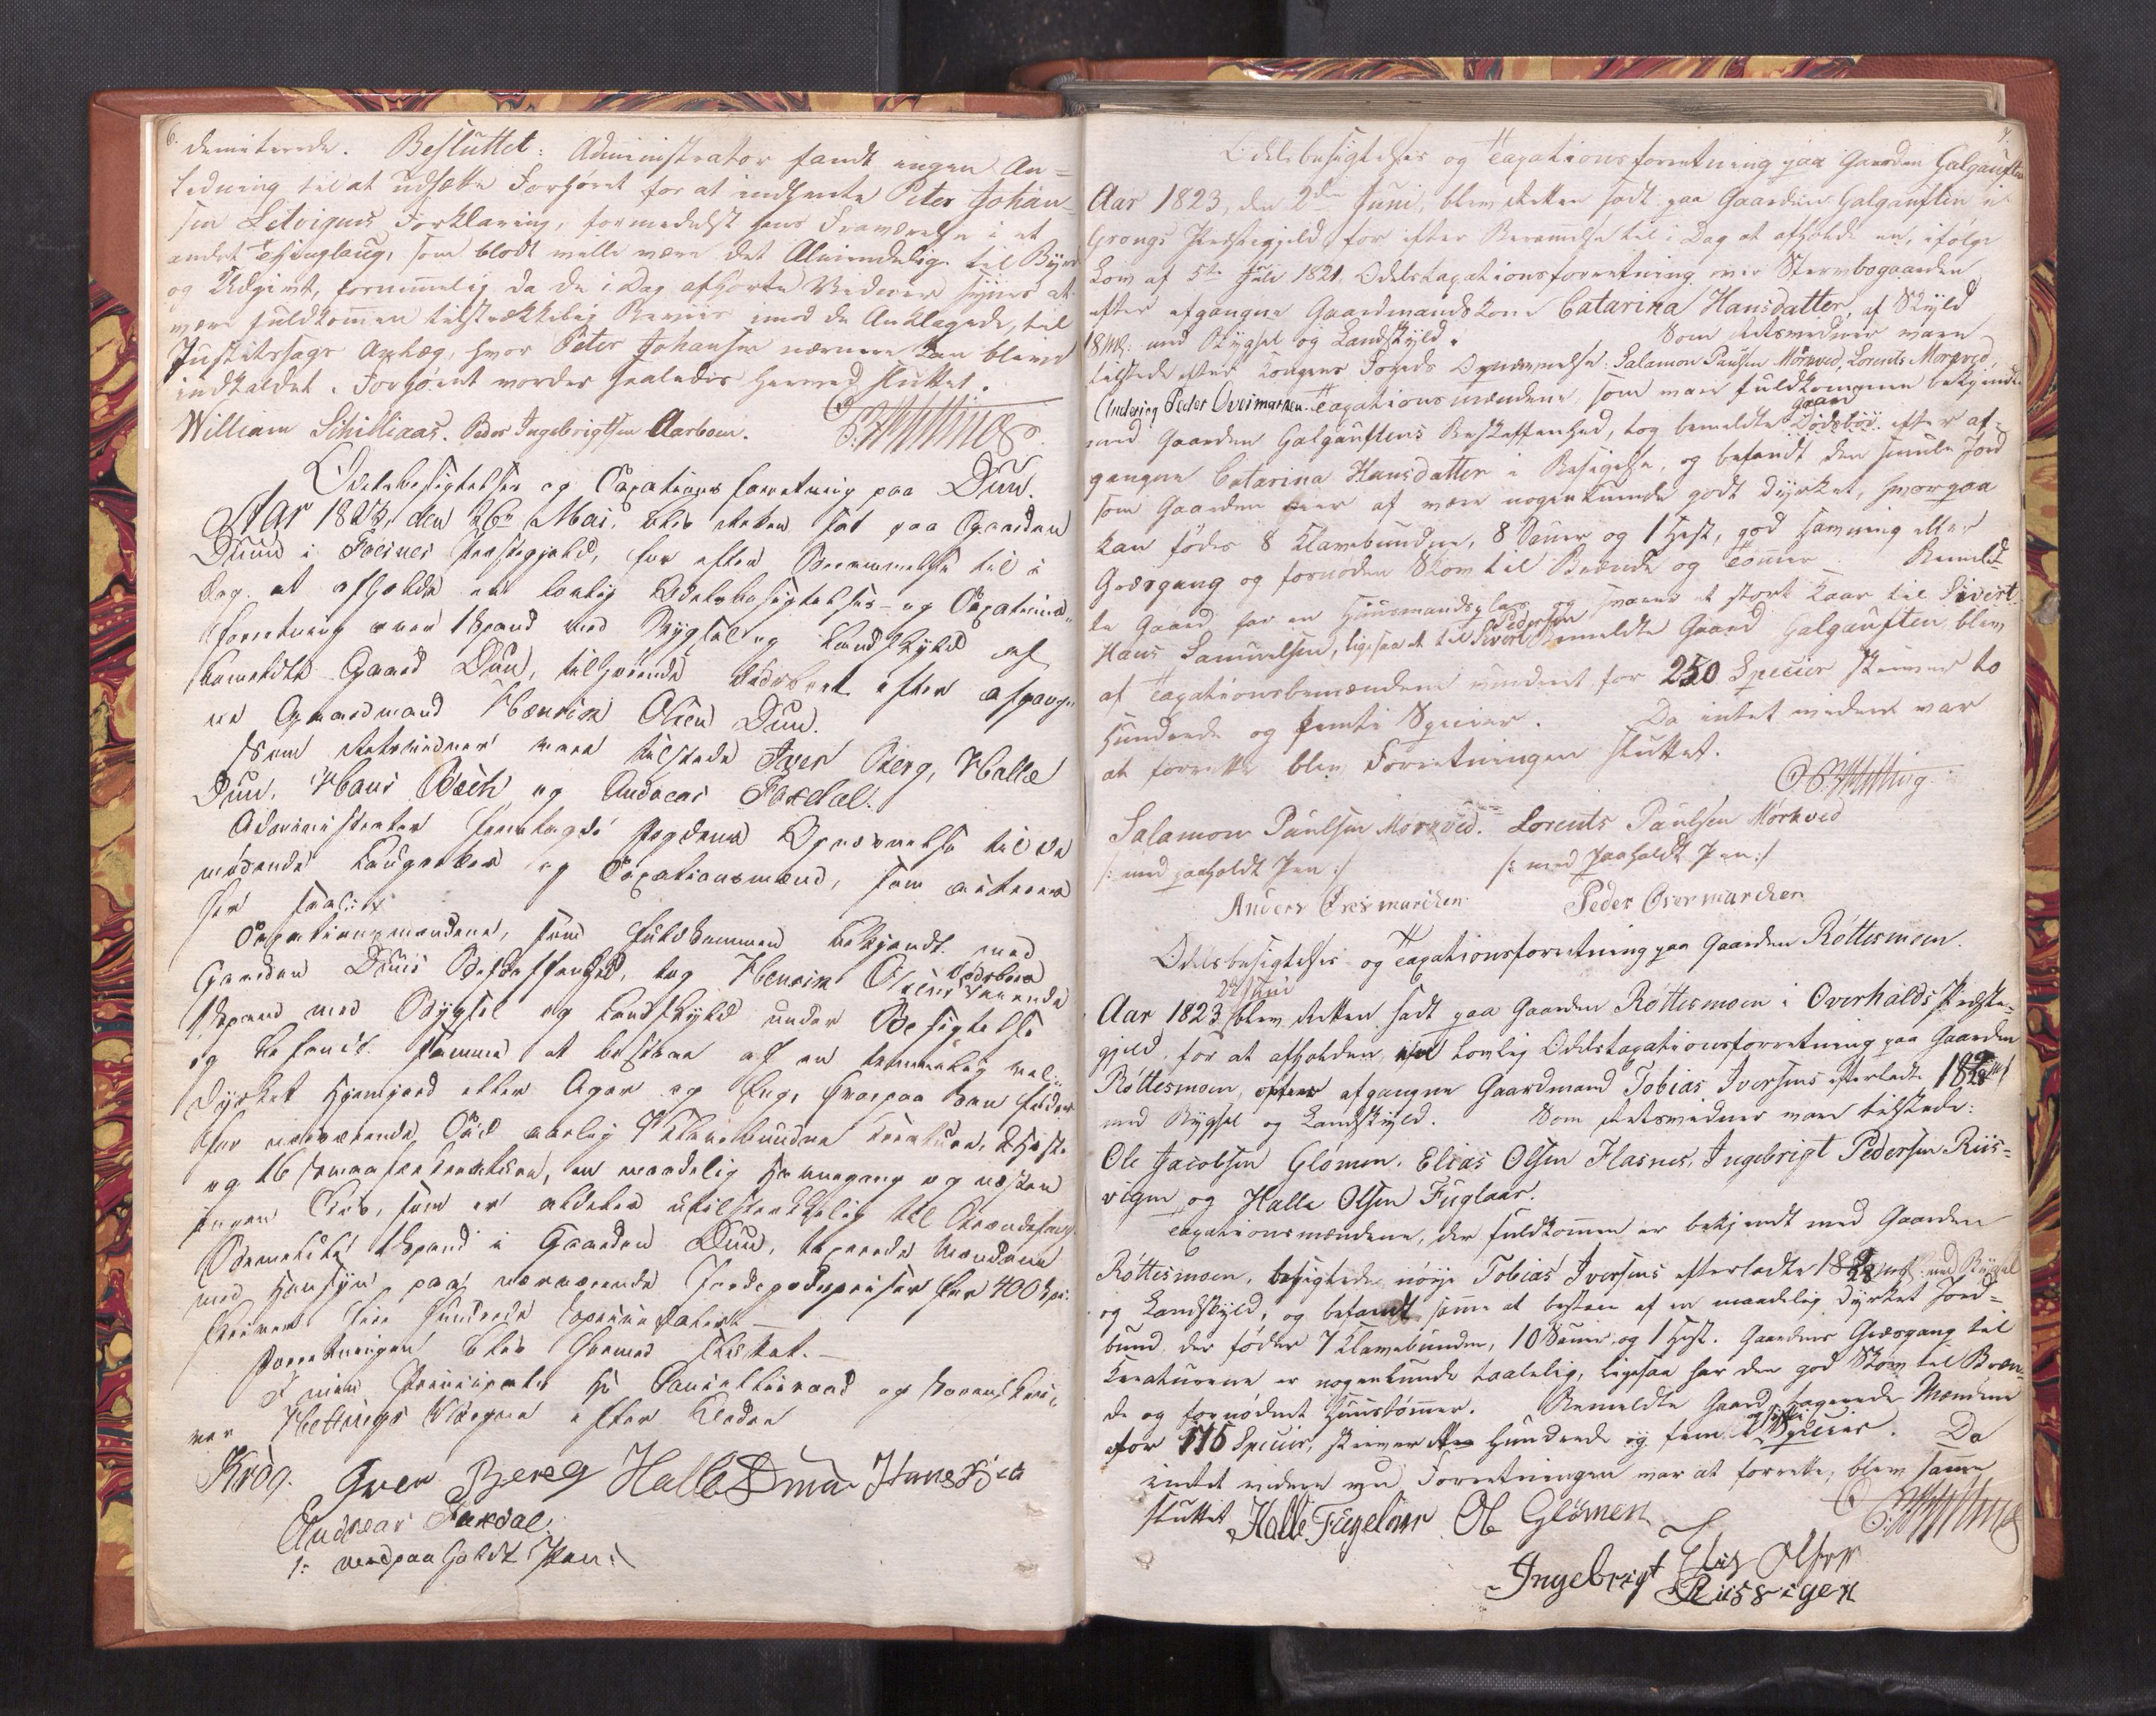 6.
demiterede. Besluttet: Administrator fandt ingen An=
ledning til at udsætte Forhøret for at indhente Peter Johan=
sen Letvignes Forklaring, formedelst hans Fraværelse i et
andet Thinglaug, som blodt wille være det Almindelige til Byrde
og Udgivt, fornemmelig da de i Dag afhørte Vidner synes at
være fuldkommen tilstrækkelig Beviis imod de Anklagede, til
Justitssags Anlæg, hvor Peter Johansen nærmere kan blive
indkaldet. Forhøret vorder saaledes hermed sluttet.
William Schilliaas. Peder Ingebrigtsen Aarboen.
Odelsbesigtelses og Taxations forretning paa Duun.
Aar 1823, den 26de Mai, blev Retten sat paa Gaarden
Duun i Foesnes Præstegjeld, for efter Berammelse til i
Dag at afholde en lovlig Odelsbesigtelses- og Taxations
forretning over 1 Spand med Bygsel og Landskyld af
bemeldte Gaard Duun, tilhørende Dødsboet efter afgang=
ne Gaardmand Henrich Olsen Duun.
Som Retsvidner vare tilstede Iver Berg, Halle
Duun, Hans Bech og Andreas Faxdal.
Administrator fremlagde Fogdens Opnævnelse til de
mødende Laugrettes og Taxationsmænd, som acteres
her saalydt
Taxationsmændene, som fuldkommen bekjendt med
Gaarden Duuns Beskaffenhed, tog Henrich Olsens Dødsboes iværende
1 Spand med Bygsel og Landskyld under Besigtelse
og befandt samme at bestaae af en temmelig vel=
dyrket Hjemjord eller Ager og Eng, hvorpaa kan føddes
for nærværende Tid aarlig 9 Klavebundne Kreaturer, 2 Heste
og 16 smaa Kreaturer, en maadelig Havnegang og næsten
ingen Skov, som er aldeles utilstrækkelig til Brændefang
Bemeldte 1 Spand i Gaarden Duun, taxerede Mændene
med Hensyn paa nærværende Jordegodspriser for 400 Spd.
skriver fire Hundrede Speciesdaler.
Forretningen blev hermed sluttet.
I min Principals Hr Cancellieraad og Sorenskri=
ver Hettings Vægne efter Ordre
Krog. Iver Berg Halle Duun Hans Bech
Andreas Faxdal
/: med paaholdt Pen :/
7.
Odelsbesigtelses og Taxationsforretning paa Gaarden Galgauften
Aar 1823, den 2den Juni, blev Retten sadt paa Gaarden Galgauften i
Grongs Præstegjeld for efter Berammelse til i Dag at afholde en, ifølge
Lov af 5te Juli 1821 Odelstaxationsforretning over Stervbogaarden
efter afgangne Gaardmandskone Catarina Hansdatter, af Skyld
18 Mrk: med Bygsel og Landskyld. Som Retsvidner vare
tilstede efter Kongens Fogeds Opnævnelse: Salamon Paulsen Mørkved, Lorents Mørkved,
Anders og Peder Overmarken. Taxationsmændene, som vare fuldkommen bekjendt
med Gaarden Galgauftens Beskaffenhed, tog bemeldte Gaard Dødsboe efter af=
gangne Catarina Hansdatter i Besigelse, og befandt den smule Jord
som Gaarden eier af være nogenlunde godt dyrket, hvorpaa
kan fødes 8 Klavebundne, 8 Sauer og 1 Hest, god Havning eller
Græsgang og fornøden Skov til Brænde og Tømmer. Bemeld=
te Gaard har en Huusmandsplas og svarer et stort Kaar til Sivert
Hans Samuelsen, ligesaa et til Sivert Pedersen Bemeldte Gaard Galgauften blev
af Taxationsbemændene vurderet for 250 Specier skriver to
Hundrede og femti Specier. Da intet videre var
at forrette blev Forretningen sluttet.
Salamon Paulsen Mørkved. Lorents Paulsen Mørkved
/: med paaholdt Pen :/ /: med paaholdt Pen :/
Anders Overmarchen Peder Overmarchen
Odelsbesigtelses- og Taxationsforretning paa Gaarden Røttesmoen.
2den Juni
Aar 1823 blev Retten sadt paa Gaarden Røttesmoen i Overhalds Præste=
gjeld, for at afholden lovlig Odelstaxationsforretning paa Gaarden
Røttesmoen, efter afgangne Gaardmand Tobias Iversens efterladte 18
med Bygsel og Landskyld. Som Retsvidner vare tilstede:
Ole Jacobsen Glømen, Elias Olsen Flasnes, Ingebrigt Pedersen Riis=
vigen og Halle Olsen Fuglaar.
Taxationsmændene, der fuldkommen er bekjendt med Gaarden
Røttesmoen, besigtede nøye Tobias Iversens efterladte 18 med Bygsel
og Landskyld, og befandt samme at bestaae af en maadelig dyrket Jord=
bund, der føder 7 Klavebundne, 10 Sauer og 1 Hest. Gaardens Græsgang til
Kreaturene er nogenlunde taalelig, ligesaa har den god Skov til Bræn=
de og fornødent Huustømmer. Bemeldte Gaard taxerede Mændene
for 175 Specier, skriver Hundrede og fem og sytti Specier. Da
intet videre ved Forretningen var at forrette, blev samme
sluttet Halle Fugelaar Ole Glømen
Elias Olsen
Ingebrigt Riisvigen